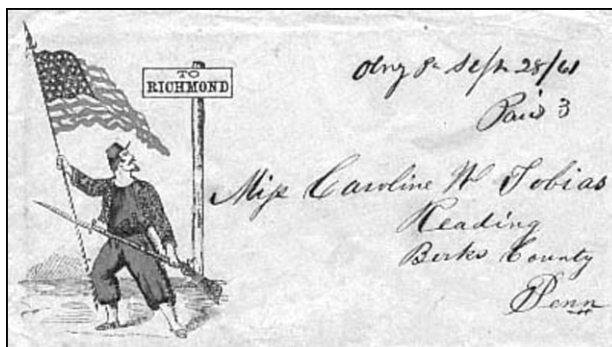 TO
RICHMOND
Olny Pa Sept 28/61
Paid 3
Miss Caroline W Tobias
Reading
Berks County
Penn